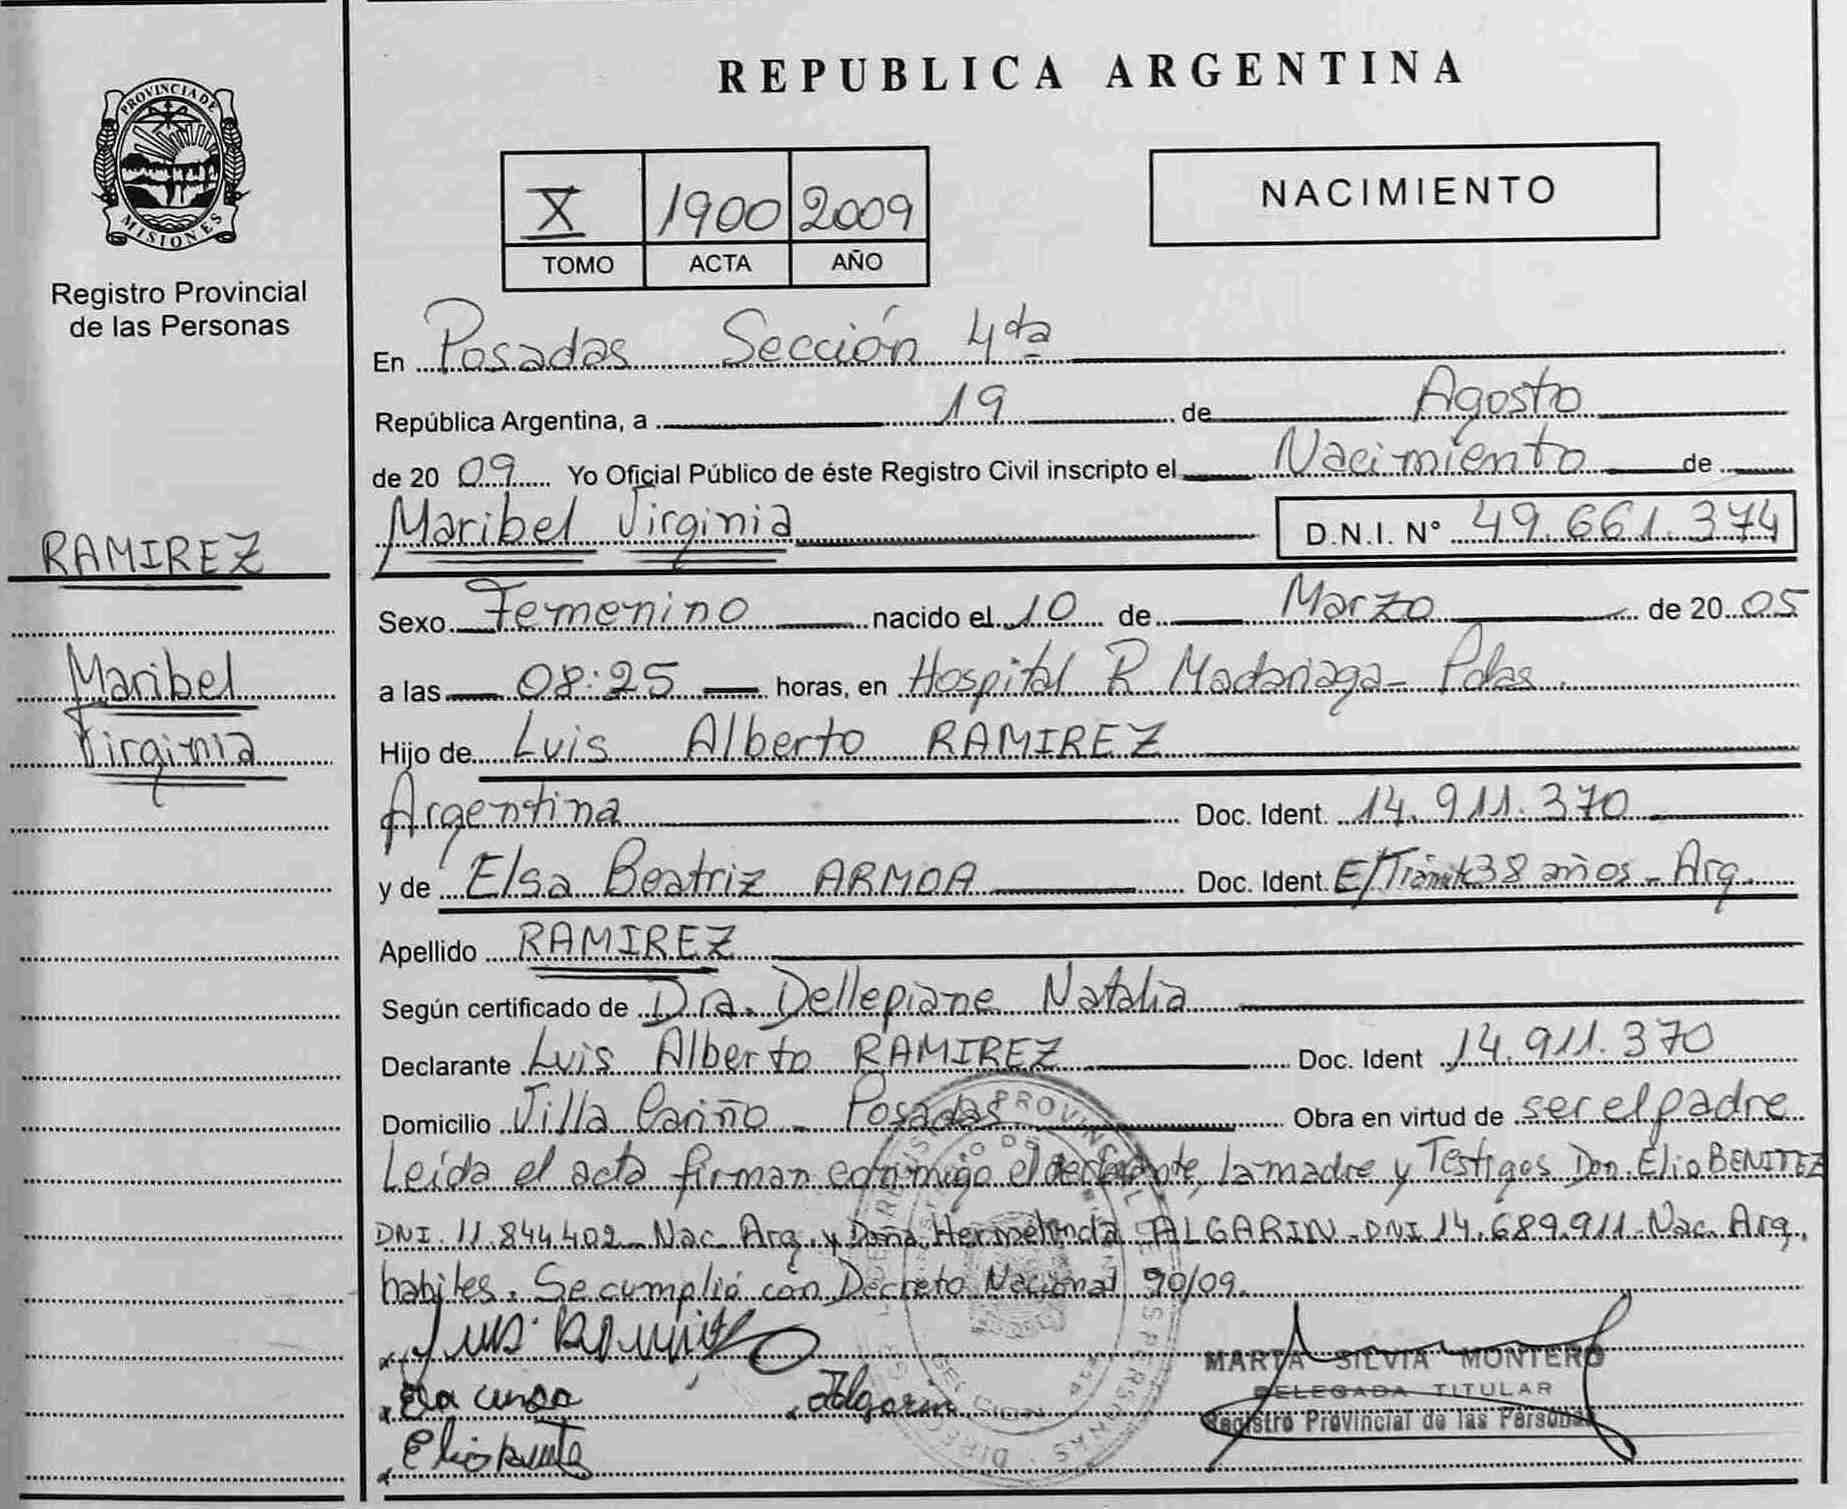 REPUBLICA ARGENTINA
PROVINCIA DE
MISIONES
Registro Provincial
de las Personas
X 1900 2009
TOMO ACTA AÑO
NACIMIENTO
En Posadas Sección 4ta
República Argentina, a 19 de Agosto
de 20 09 Yo Oficial Público de éste Registro Civil inscripto el Nacimiento de
Maribel Virginia D.N.I. N° 49.661.374
RAMIREZ
Maribel
Virginia
Sexo Femenino nacido el 10 de Marzo de 20 05
a las 08:25 horas, en Hospital R Madariaga - Pdas.
Hijo de Luis Alberto RAMIREZ
Argentina Doc. Ident. 14.911.370
y de Elsa Beatriz ARMOA Doc. Ident. E/Trámite 38 años - Arg.
Apellido RAMIREZ
Según certificado de Dra. Dellepiane Natalia
Declarante Luis Alberto RAMIREZ Doc. Ident 14.911.370
Domicilio Villa Cariño - Posadas Obra en virtud de ser el padre
Leída el acta firman conmigo el declarante, la madre y Testigos Don. Elio BENITEZ
DNI. 11.844.402 - Nac. Arg. y Doña Hermelinda ALGARIN - DNI 14.689.911 - Nac. Arg.
habiles. Se cumplió con Decreto Nacional 90/09.
MARTA SILVIA MONTERO
DELEGADA TITULAR
Registro Provincial de las Personas
Algarin